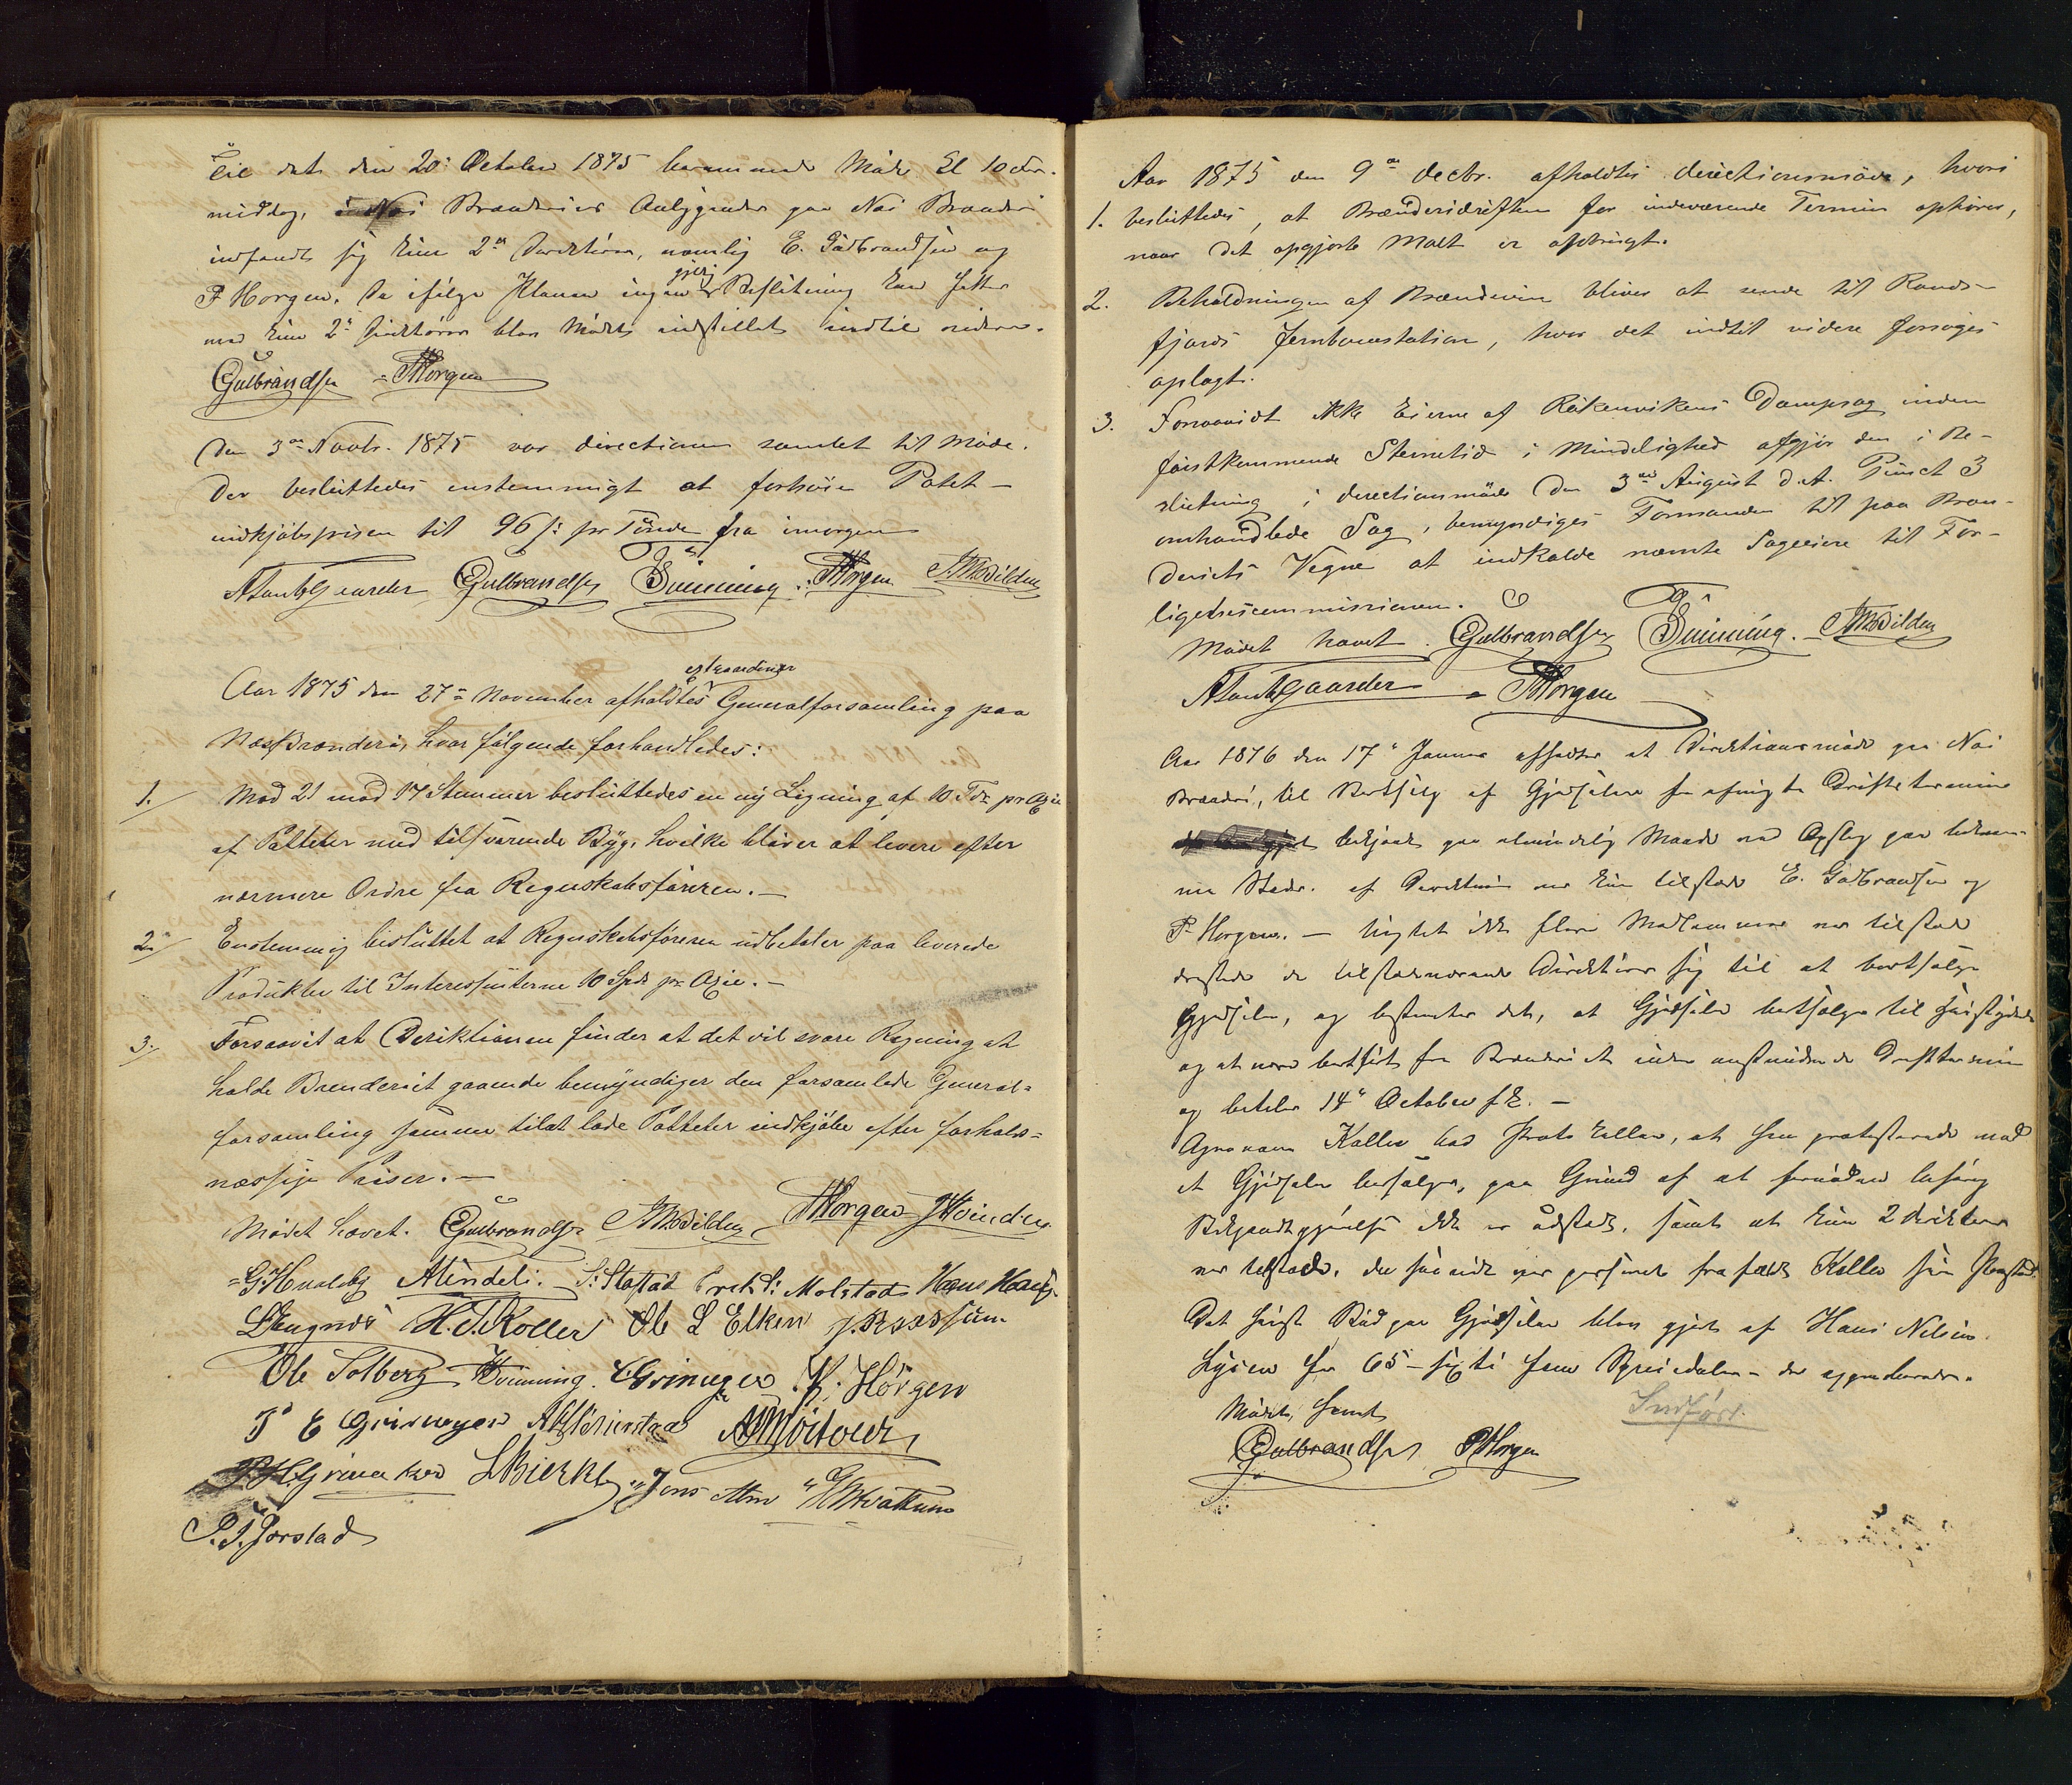 Til det den 20de October 1875 berammede Møde Kl 10 For-
middag, Næs Brænderies Anliggender paa Næs Brænderi
indfandt sig kun 2de Direktører, nemlig E. Gulbrandsen og
P Horgen. Da ifølge Planen ingen gyldig Beslutning kan fattes
med kun 2de Direktører blev Mødet indstillet indtil videre.
EGulbrandsen PHorgen
Den 3die Novbr. 1875 var directionen samlet til Møde.
Der besluttedes enstemmigt at forhøie Potet-
indkjøbsprisen til 96 s: pr Tønde fra imorgen
ALundtGaarder EGulbrandsen Svinning. PHorgen
Aar 1875 den 27de November afholdtes extraordinær Generalforsamling paa
Næs Brænderi, hvor følgende forhandledes:
1. Mod 21 mod 17 Stemmer besluttedes en ny Ligning af 10 Tdr pr Axie
af Potteter med tilsvarende Byg, hvilke bliver at levere efter
nærmere Ordre fra Regnskabsføreren.—
2. Enstemmig besluttet at Regnskabsføreren udbetaler paa leverede
Produkter til Interessenterne 10 Spd pr Axie.—
3. Forsaavit at Deriktionen finder at det vil svare Regning at
holde Brænderiet gaaende bemyndiger den forsamlede General=
forsamling samme tilat lade Potteter indkjøbe efter forholds=
mæssige Priser.—
Mødet hævet. EGulbrandsen PHorgen Hvinden
G. Hvaleby AMindeli. S: Stastad Fredr: Molstad Hans
LEngnæs H. T. Koller Ole L Elken J. Røssum
Ole Solberg Svinning. P. Hørgen
T E Grinager
LBjerke Jens Alm
P. T. Jorstad
Aar 1875 den 9de decbr. afholdtes directionsmøde, hvori
1. besluttedes, at Brænderidriften for indeværende Termin ophører,
naar det opgjorte Malt er opbrugt.
2. Beholdningen af Brændevin bliver at sende til Rands-
fjords Jernbanestation, hvor det indtil videre forsøges
oplagt.
3. Forsaavidt ikke Eierne af Røkenvikens Dampsag inden
førstkommende Stevnetid i Mindelighed afgjør den i Be-
slutning i directionsmøde den 3die August d.A. Punct 3
omhandlede Sag, bemyndiges Formanden til paa Bræn-
deriets Vegne at indkalde nævnte Sageiere til For-
ligelsescommissionen.
Mødet hævet. EGulbrandsen Svinning.
ALundtGaarder PHorgen
Aar 1876 den 17de Januar afholdtes et Direktionsmøde paa Næs
Brænderi, til Bortsalg af Gjødselen for afvigte Driftstermin
bekjendt paa almindelig Maade ved Opslag paa bekvem-
me Steder. af Direktionen var kun tilstede E. Gulbrandsen og
P. Horgen. — Uagtet ikke flere Medlemmer var tilstede
dristede de tilstedeværende Direktører sig til at bortsælge
Gjødselen, og bestemtes det, at Gjødselen bortsælges til Høistbydende
og at være bortført fra Brænderiet inden anstundende Drifttermin
og betales 14de October f. k. —
Agronom Koller bad Protokolleret, at han protesterede mod
at Gjødselen bortsælges, paa Grund af at fornøden lovlig
Bekjendtgjørelse ikke er udstedt, samt at kun 2 direktører
var tilstede, den senere frafaldt Koller sin Paastand.
Det høist Bud paa Gjødselen blev gjort af Hans Nilsen
Lysen for 65 - sexti fem Speciedaler -
Mødet hævet
Indført.
EGulbrandsen PHorgen